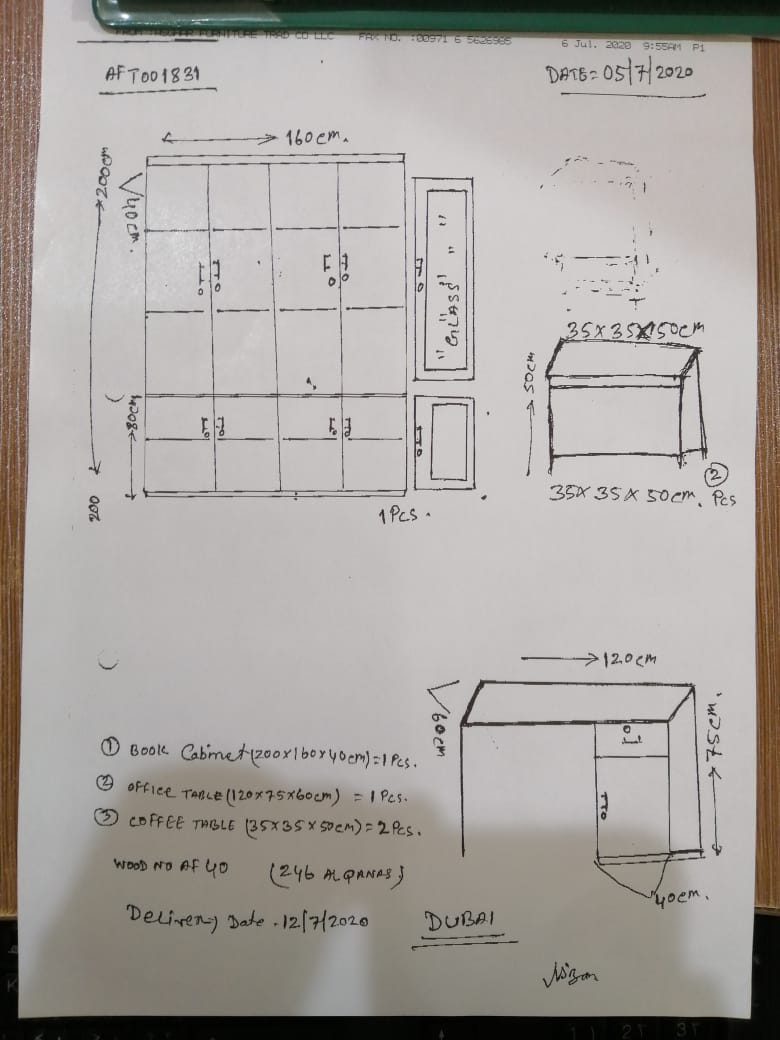 FROM FURNITURE TRAD CO LLC FAX NO. :00971 6 5626985 6 Jul. 2020 9:55AM P1
AFT001831
DATE= 05/7/2020
160cm.
200cm
40cm.
"GLASS" " "
80cm
200
1Pcs.
35x35x150cm
50cm
2
35x35x50cm. Pcs
120cm
60cm
75cm.
40cm.
① Book Cabinet (200x160x40cm)=1Pcs.
② OFFICE TABLE (120x75x60cm) = 1Pcs.
③ COFFEE TABLE (35x35x50cm)= 2Pcs.
WOOD NO AF 40 (246 ALQANAS)
Delivery Date. 12/7/2020
DUBAI